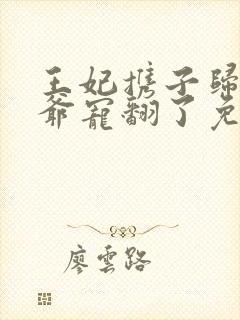 王妃携子歸
爺寵翻了免
廖雲路